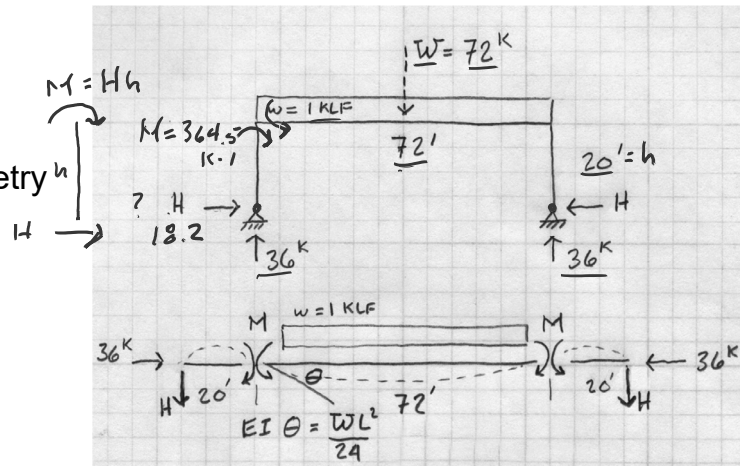 W = 72ᴷ
M = Hh
w = 1 KLF
M = 364.5
K-1
72'
20' = h
etry h
? H
H
H
18.2
36ᴷ
36ᴷ
w = 1 KLF
M
M
36ᴷ
36ᴷ
θ
H
20'
72'
20'
H
EI θ = WL²
24